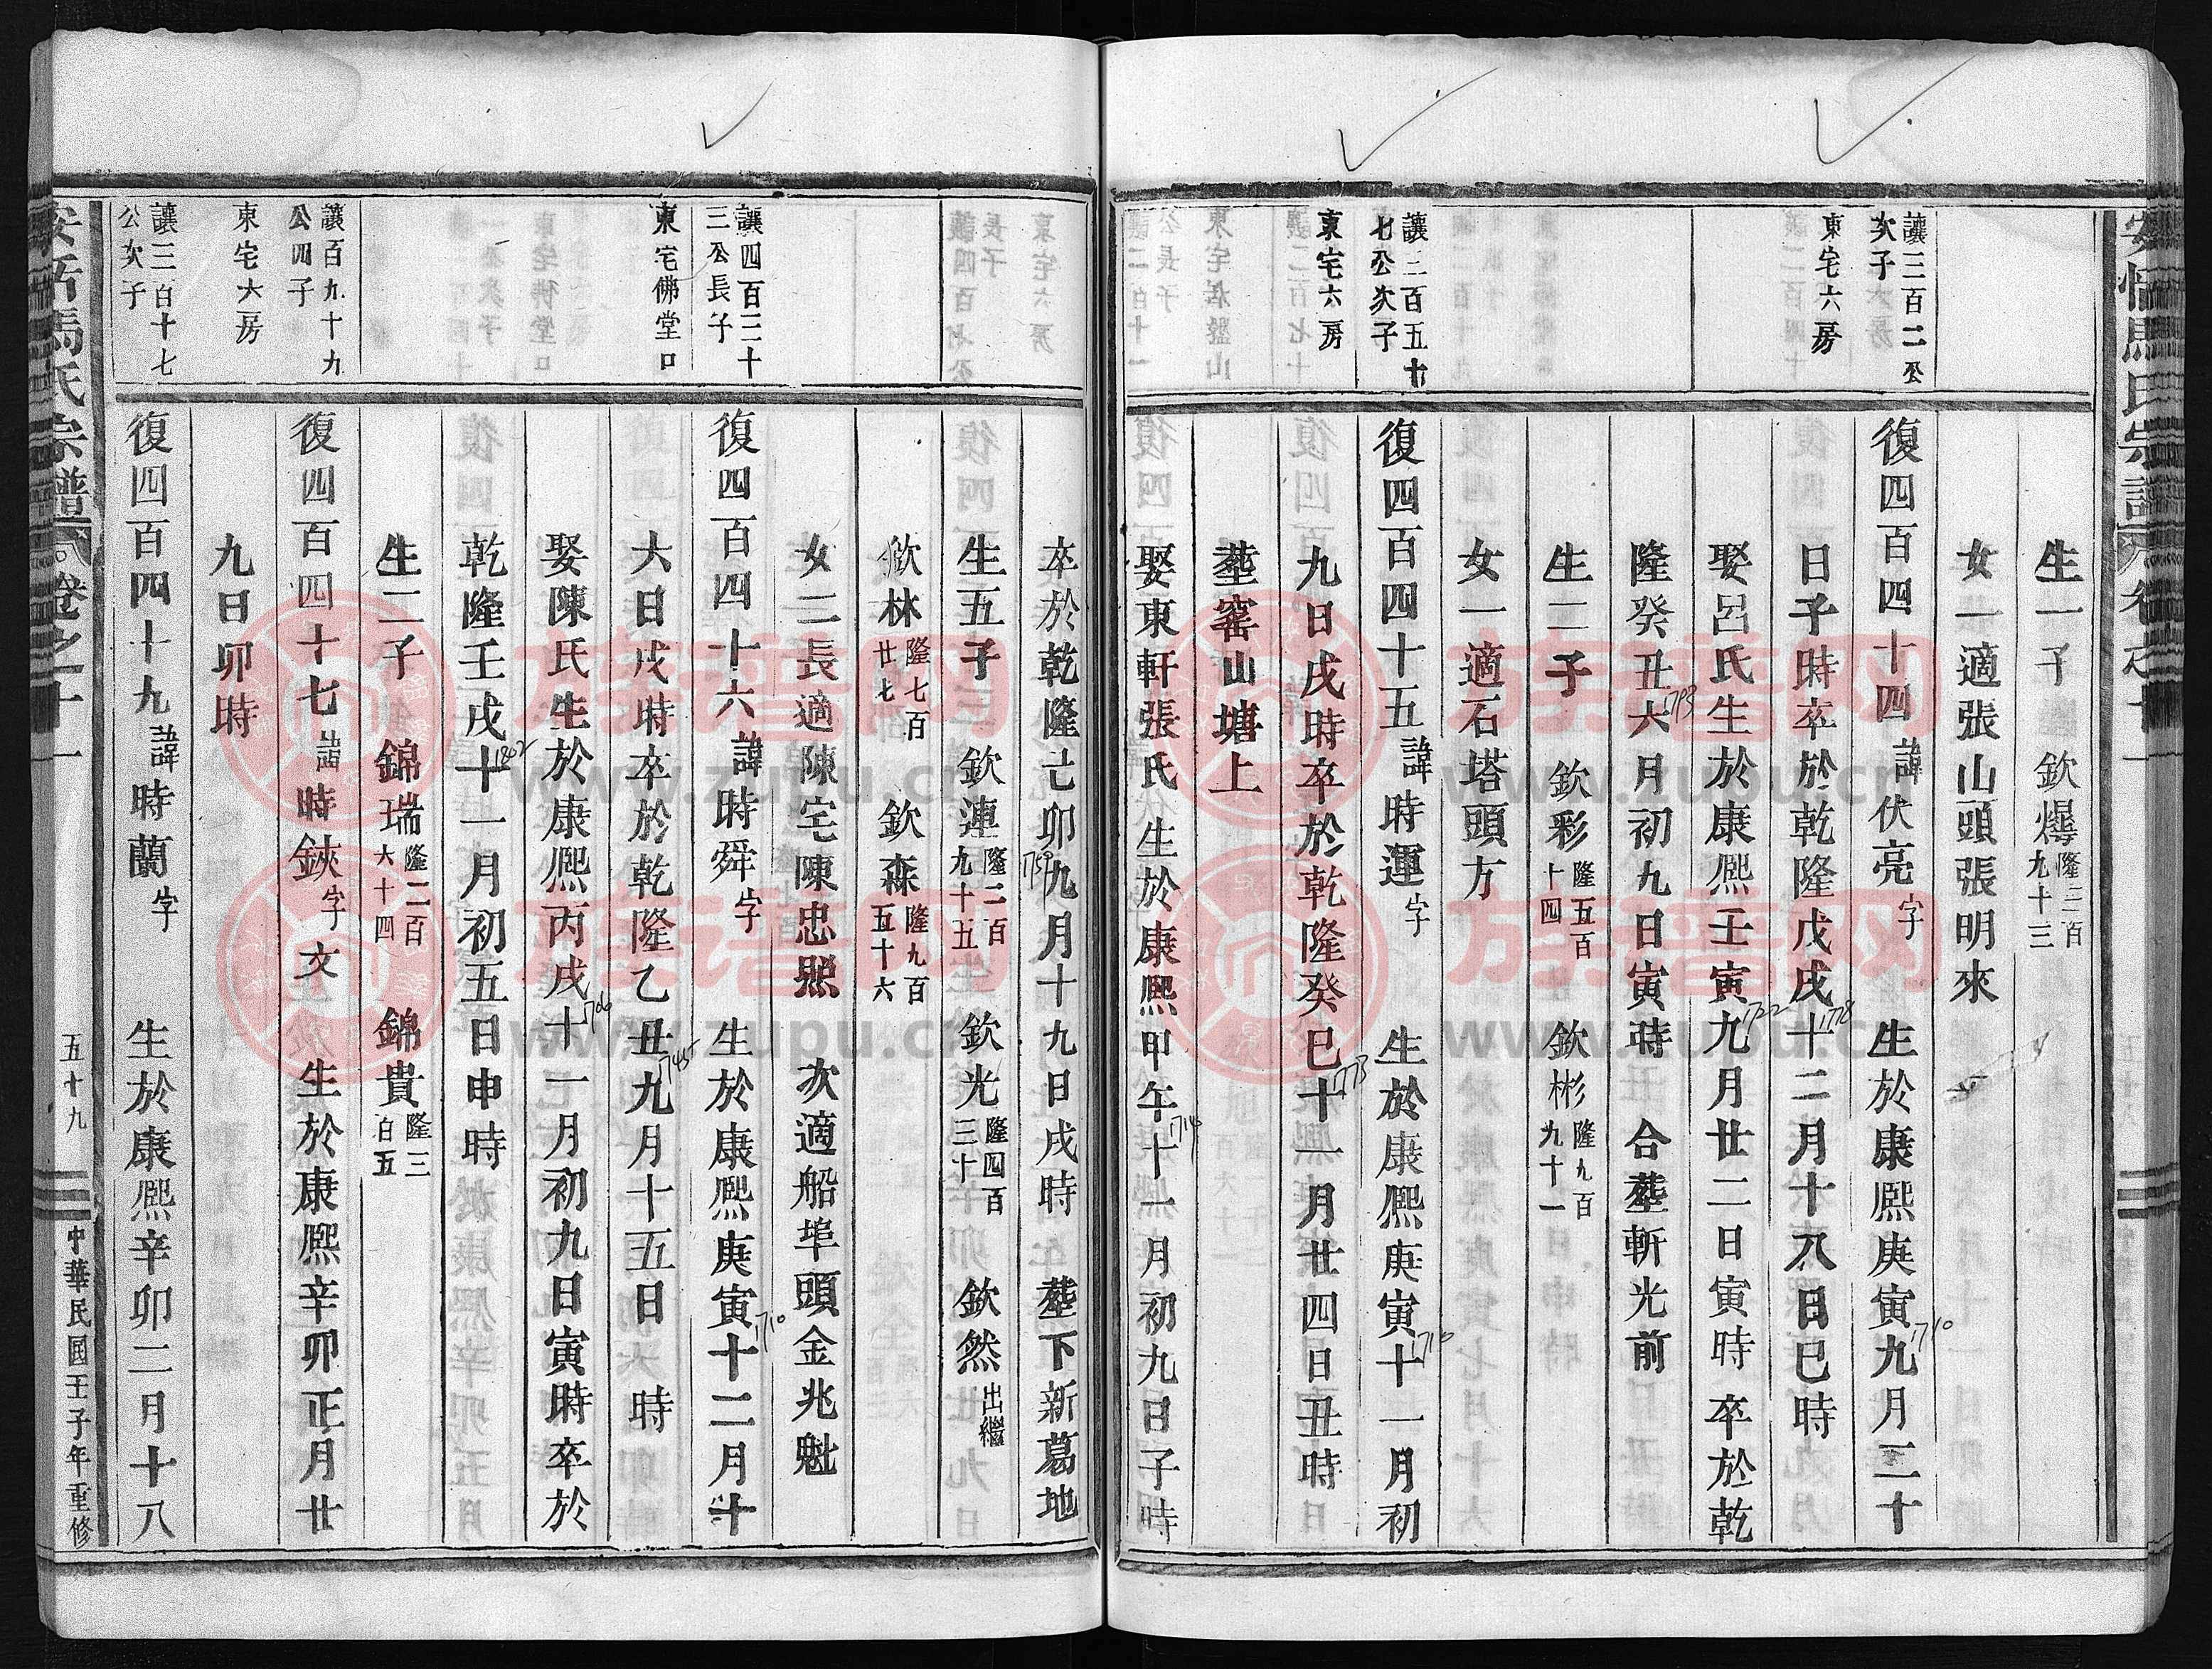 生一子 欽爆隆三百九十三
女一適張山頭張明來
讓三百二公次子
東宅六房
復四百四十四諱伏亮字 生於康熙庚寅九月二十
1710
日子時卒於乾隆戊戌十二月十八日巳時
1778
娶呂氏生於康熙壬寅九月廿二日寅時 卒於乾
1722
隆癸丑六月初九日寅時 合塟斬光前
1793
生二子 欽彩隆五百十四 欽彬隆九百九十一
女一適石塔頭方
讓二百五十七公次子
東宅六房
復四百四十五諱時運字 生於康熙庚寅十一月初
1710
九日戌時卒於乾隆癸巳十一月廿四日丑時
1773
塟窰山塘上
娶東軒張氏 生於康熙甲午十一月初九日子時
1714
卒於乾隆己卯九月十九日戌時 塟下新葛地
1759
生五子 欽連隆二百九十五 欽光隆四百三十 欽然出繼
欽林隆七百廿七 欽森隆九百五十六
女二長適陳宅陳忠熙 次適船埠頭金兆魁
讓四百二十三公長子
東宅佛堂口
復四百四十六諱時舜字 生於康熙庚寅十二月十
1710
六日戌時卒於乾隆乙丑九月十五日 時
1745
娶陳氏生於康熙丙戌十一月初九日寅時卒於
1706
乾隆壬戌十一月初五日申時
1802
生二子 錦瑞隆二百六十四 錦貴隆三百五
讓百九十九公四子
東宅六房
復四百四十七諱時鋏字文 生於康熙辛卯正月廿
九日卯時
讓三百十七公次子
復四百四十九諱時蘭字 生於康熙辛卯二月十八
馬氏宗譜 卷之十一
五十九
中華民國壬子年重修
族譜网
www.zupu.cn
族譜网
www.zupu.cn
族譜网
www.zupu.cn
族譜网
www.zupu.cn